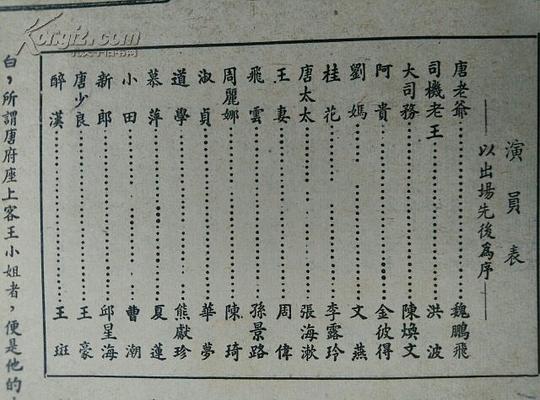 演員表
——以出場先後為序——
唐老爺……魏鵬飛
司機老王……洪波
大司務……陳煥文
阿貴……金彼得
劉媽……文燕
桂花……李露玲
唐太太……張海漱
王妻……周偉
飛雲……孫景路
周麗娜……陳琦
淑貞……華夢
道學……熊獻珍
慕萍……夏蓮
小田……曹潮
新郎……邱星海
唐少良……王豪
醉漢……王斑
白，所謂唐府座上客王小姐者，便是他的
Kongfz.com